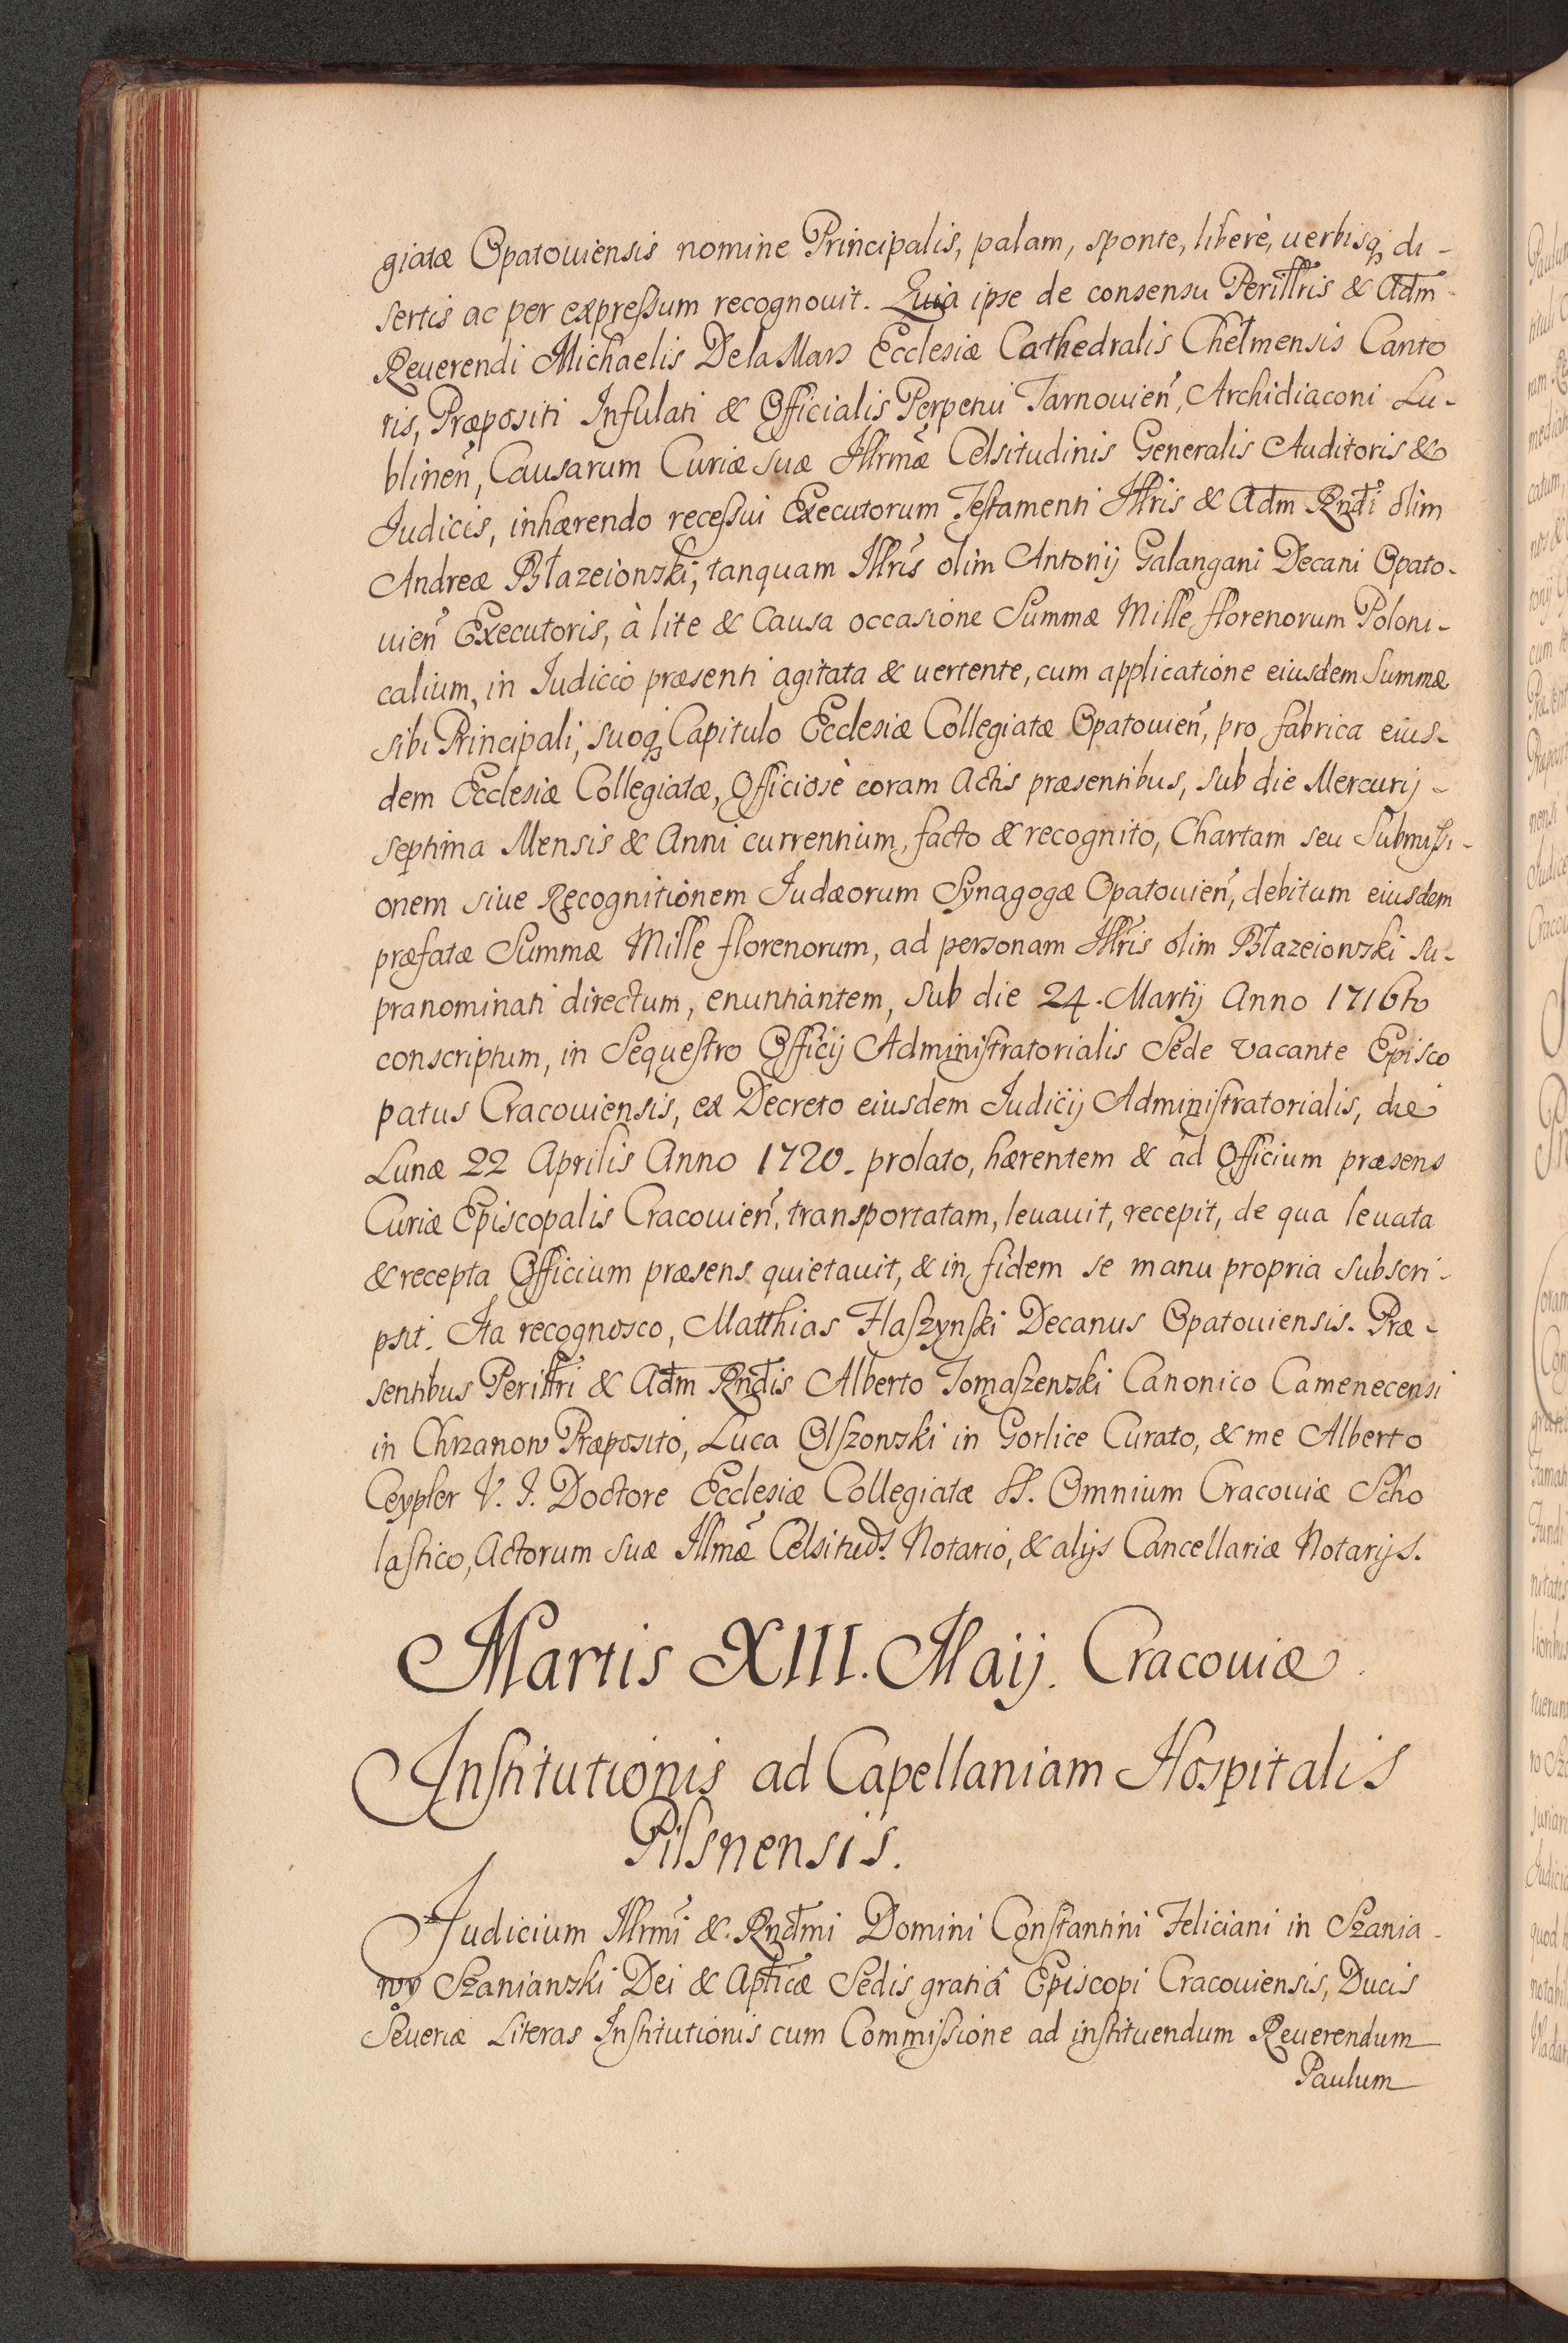 giatæ Opatouiensis nomine Principalis, palam, sponte, liberè, uerbisq́ di-
sertis ac per expreſsum recognouit. Quia ipse de consensu Perillris & Adm
Reuerendi Michaelis DelaMars Ecclesiæ Cathedralis Chełmensis Canto
ris, Præpositi Infulati & Officialis Perpetui Tarnouień, Archidiaconi Lu-
blineń, Causarum Curiæ suæ Illrmæ Celsitudinis Generalis Auditoris &
Iudicis, inhærendo receſsui Executorum Teſtamenti Illris & Adm Rndi olim
Andreæ Błazeiowski, tanquam Illris olim Antonij Galangani Decani Opato-
uień Executoris, à lite & Causa occasione Summæ Mille florenorum Poloni-
calium, in Iudicio præsenti agitata & uertente, cum applicatione eiusdem Summæ
sibi Principali, suoq́ Capitulo Ecclesiæ Collegiatæ Opatouień, pro fabrica eius-
dem Ecclesiæ Collegiatæ, Officiosè coram Actis præsentibus, sub die Mercurij-
septima Mensis & Anni currentium, facto & recognito, Chartam seu Submiſsi-
onem siue Recognitionem Iudæorum Synagogæ Opatouień, debitum eiusdem
præfatæ Summæ Mille florenorum, ad personam Illris olim Błazeiowski su-
pranominati directum, enuntiantem, sub die 24. Martij Anno 1716to
conscriptum, in Sequeſtro Officij Adminiſtratorialis Sede vacante Episco
patus Cracouiensis, ex Decreto eiusdem Iudicij Adminiſtratorialis, die
Lunæ 22 Aprilis Anno 1720. prolato, hærentem & ad Officium præsens
Curiæ Episcopalis Cracouień, transportatam, leuauit, recepit, de qua leuata
& recepta Officium præsens quietauit, & in fidem se manu propria subscri-
psit. Ita recognosco, Matthias Haſzynſki Decanus Opatouiensis. Præ-
sentibus Perillri & Adm Rndis Alberto Tomaſzewski Canonico Camenecensi
in Chrzanow Præposito, Luca Olſzowski in Gorlice Curato, & me Alberto
Ceypler V. I. Doctore Ecclesiæ Collegiatæ SS. Omnium Cracouiæ Scho
laſtico, Actorum suæ Illmæ Celsituds Notario, & alijs Cancellariæ Notarijs.
Martis XIII. Maij. Cracouiæ
Inſtitutionis ad Capellaniam Hospitalis
Pilsnensis.
Iudicium Illrmi &. Rndmi Domini Conſtantini Feliciani in Szania-
wy Szaniawski Dei & Apłicæ Sedis gratiâ Episcopi Cracouiensis, Ducis
Seueriæ Literas Inſtitutionis cum Commiſsione ad inſtituendum Reuerendum
Paulum